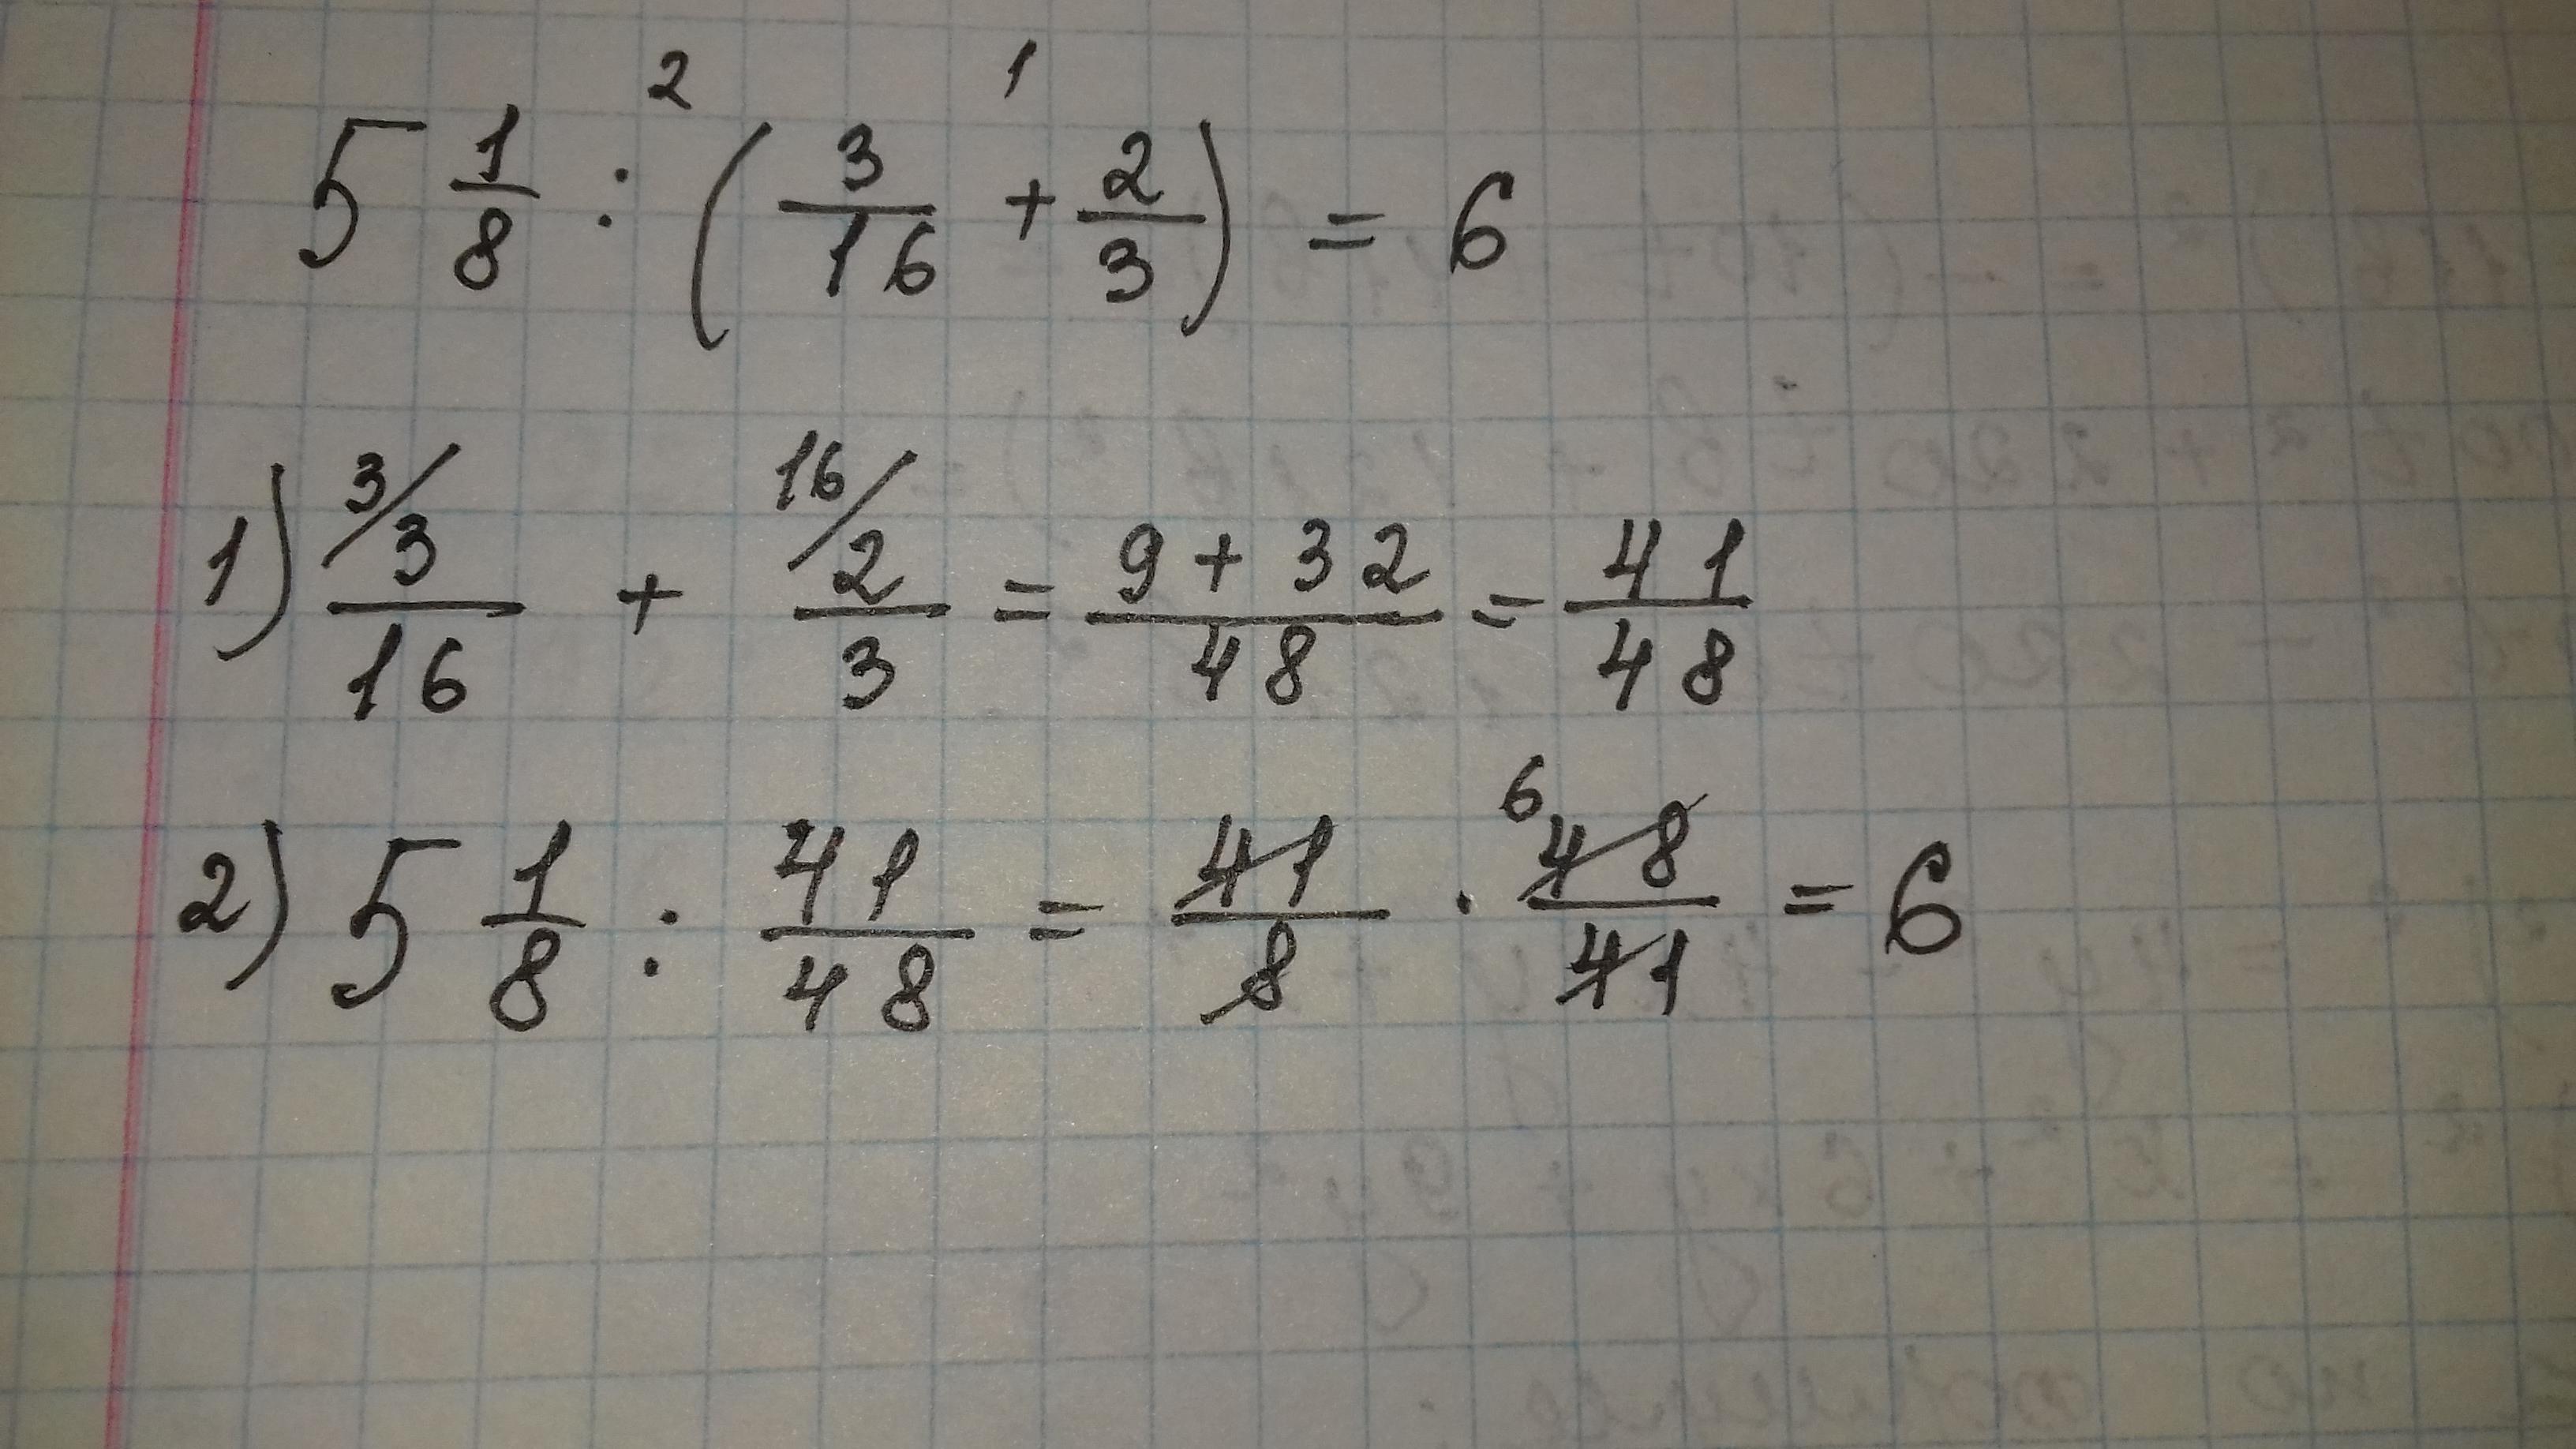 2 1
5 1/8 : (3/16 + 2/3) = 6
1) 3/ 3/16 + 16/ 2/3 = 9 + 32/48 = 41/48
2) 5 1/8 : 41/48 = 41/8 · 6 48/41 = 6